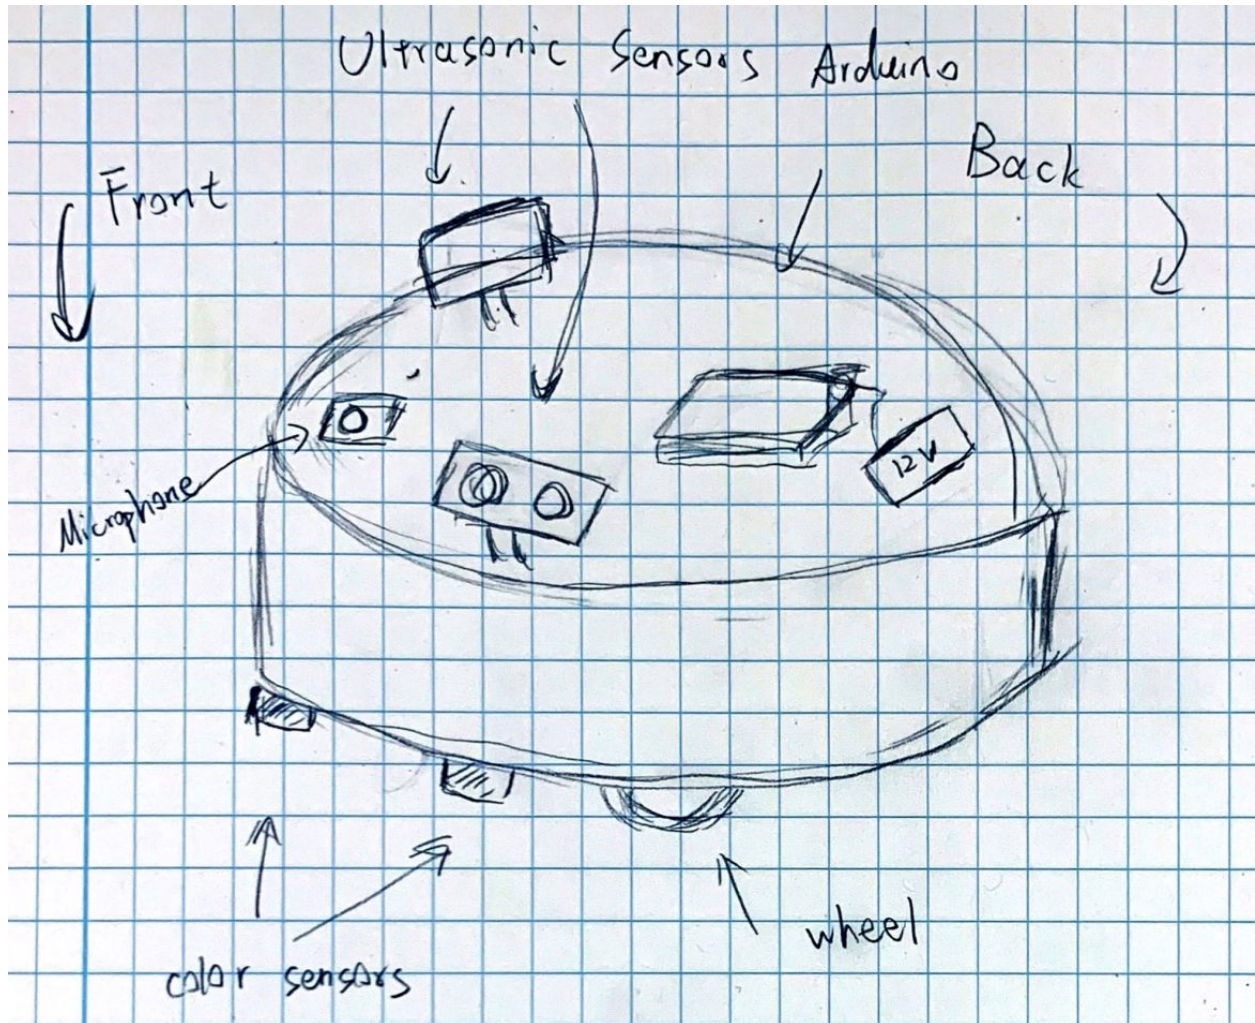 Ultrasonic Sensors Arduino
Front
Back
Microphone
12V
color sensors
wheel